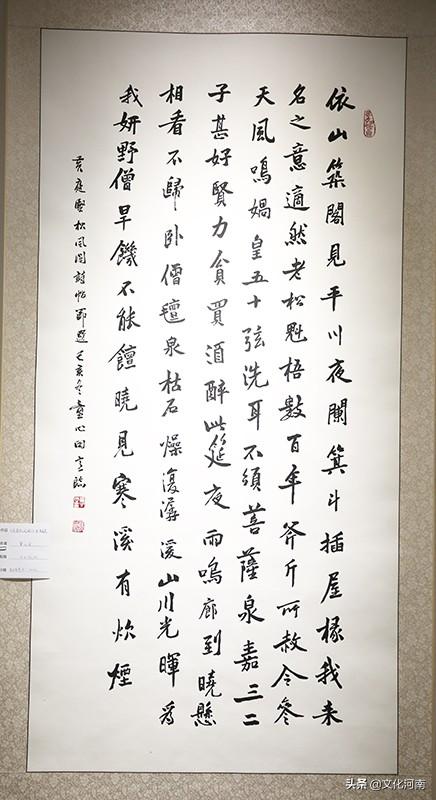 依山築閣見平川夜闌箕斗插屋椽我来
名之意適然老松魁梧數百年斧斤所赦今參
天風鳴媧皇五十弦洗耳不須菩薩泉嘉三二
子甚好賢力貧買酒醉此筵夜雨鳴廊到曉懸
相看不歸卧僧氈泉枯石燥復潺湲山川光暉爲
我妍野僧旱饑不能饘曉見寒溪有炊煙
黄庭堅松風閣詩帖節選己亥冬臨
头条 @文化河南